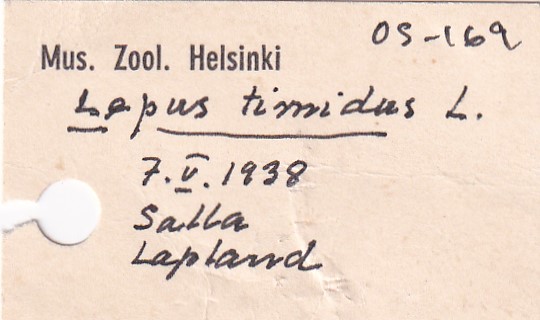 OS-169
Mus. Zool. Helsinki
Lepus timidus L.
7.V.1938
Salla
Lapland